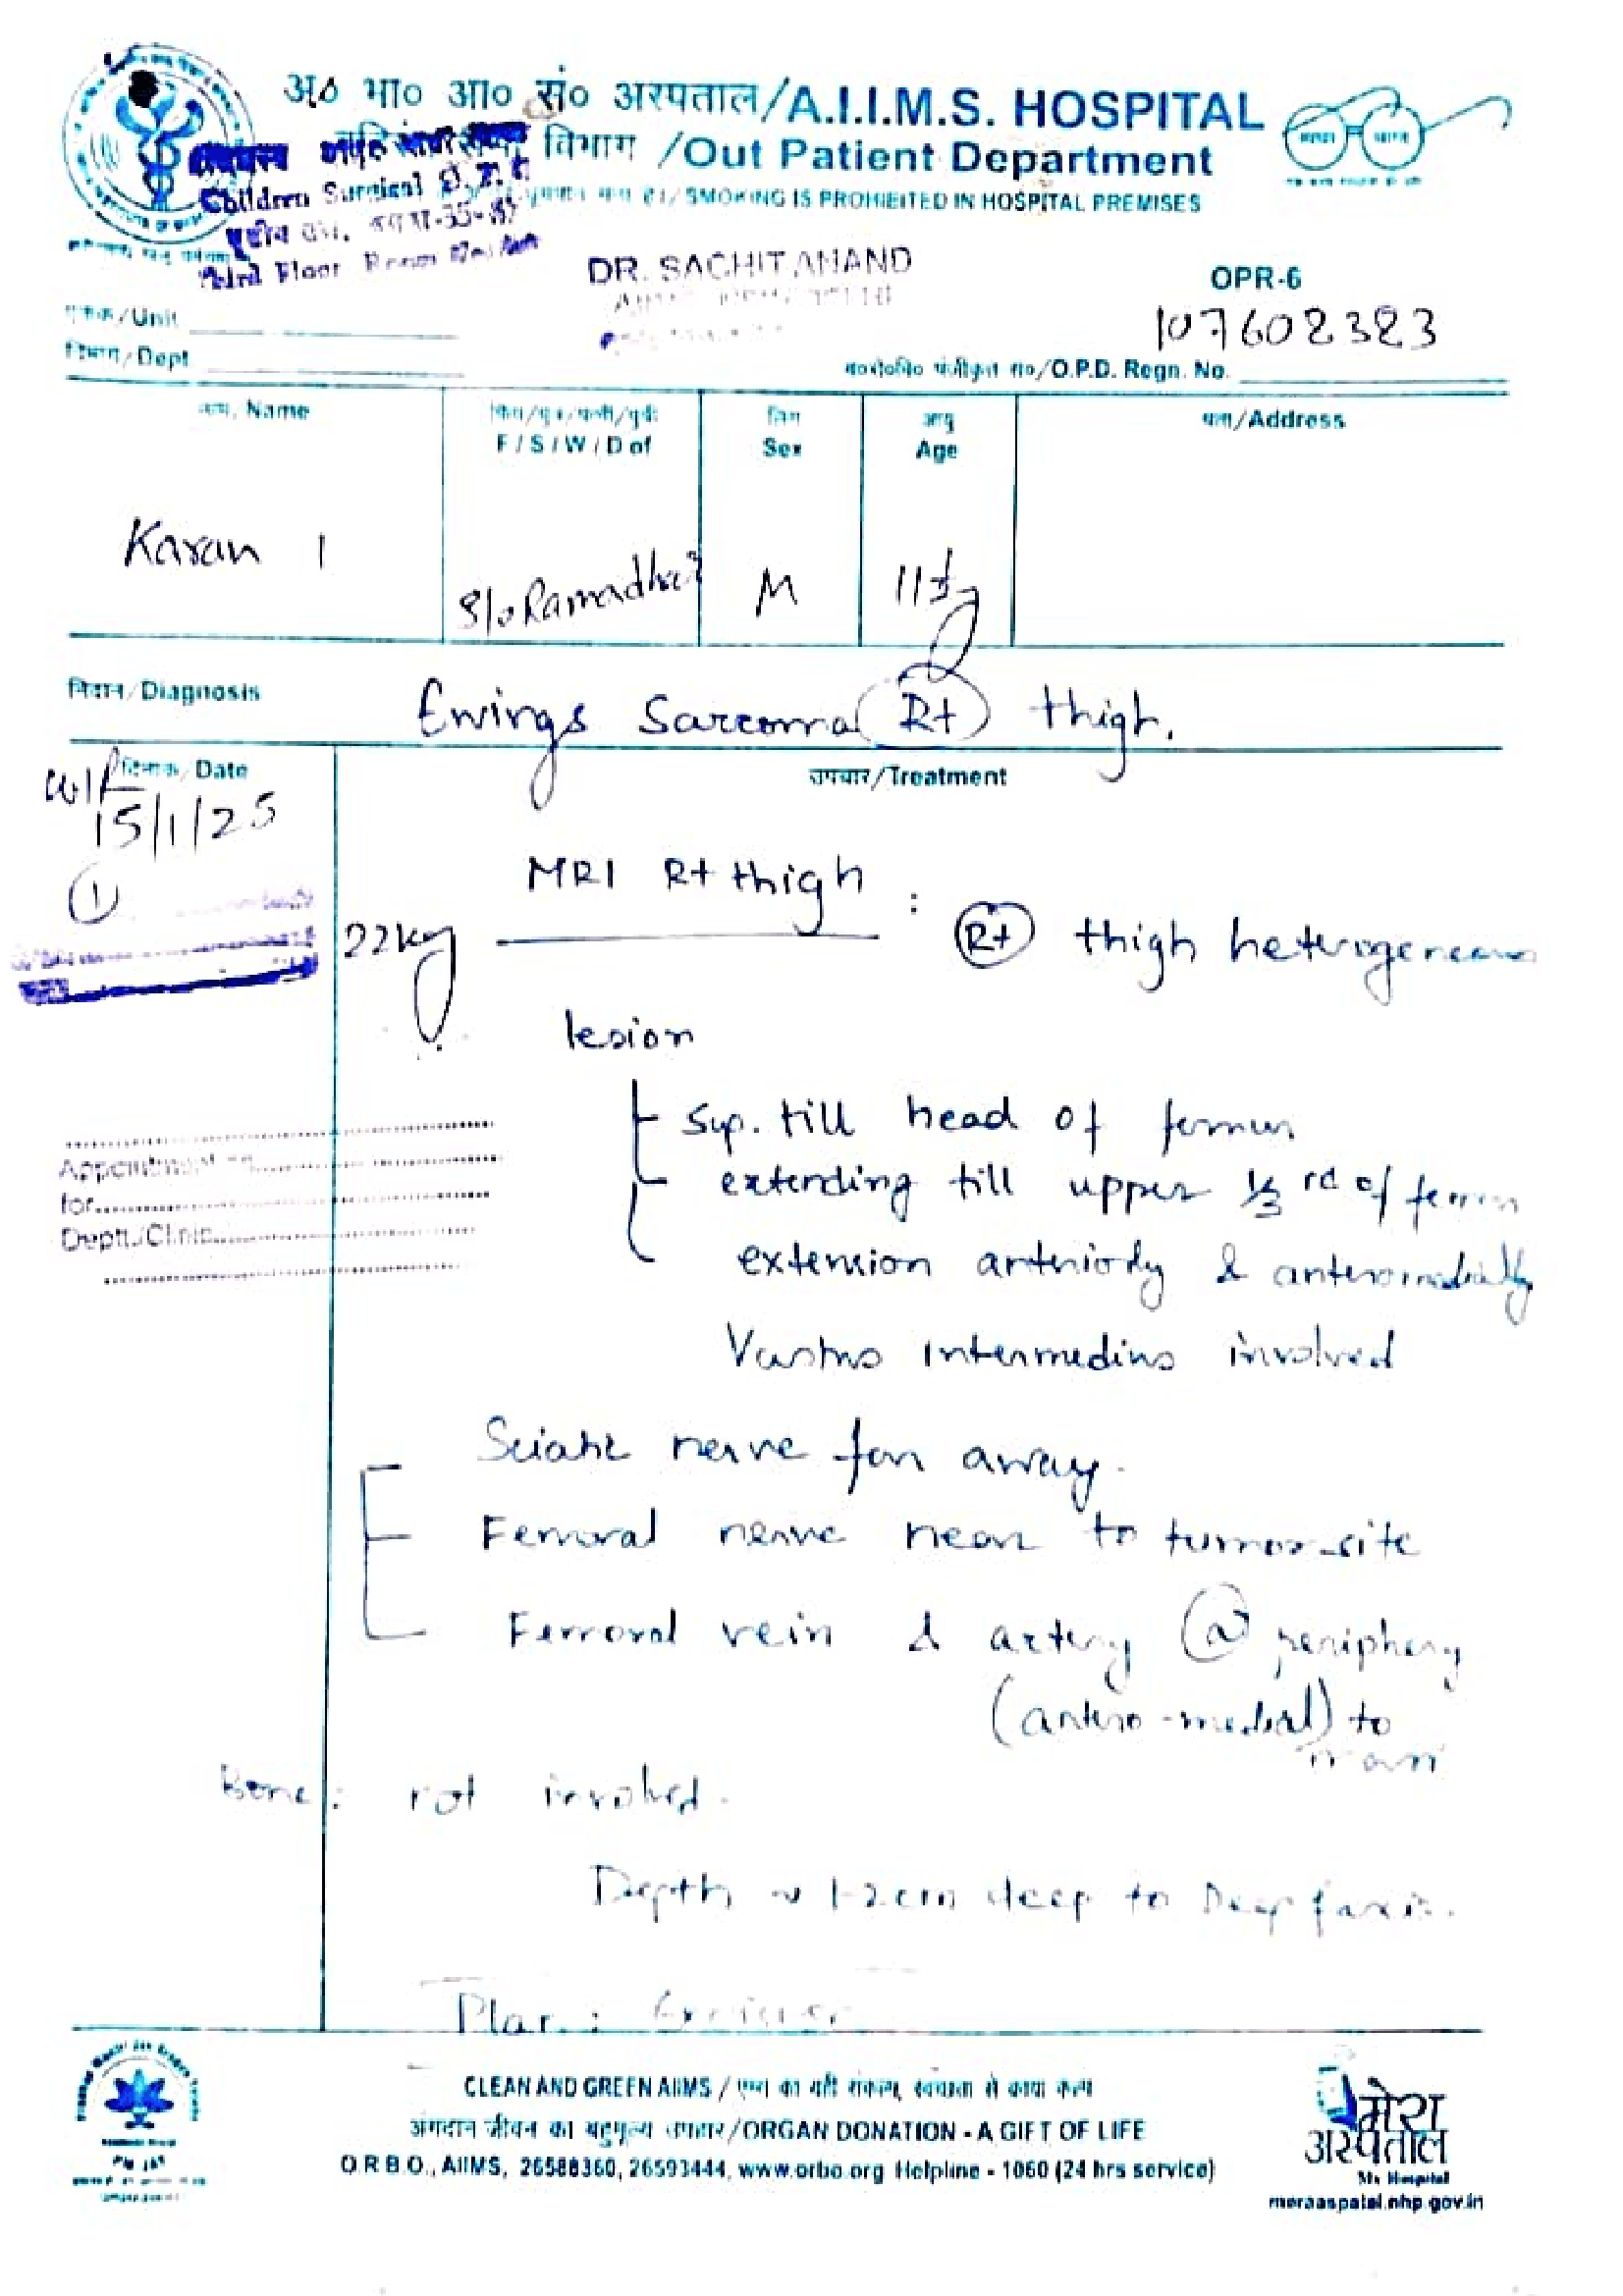 अ० भा० आ० सं० अस्पताल/A.I.I.M.S. HOSPITAL
विभाग /Out Patient Department
Children Surgical
SMOKING IS PROHIBITED IN HOSPITAL PREMISES
Third Floor Room
DR. SACHIT ANAND
OPR-6
/Unit
107602323
विभाग/Dept
/O.P.D. Regn. No.
नाम, Name
F / S / W / D of
लिंग
Sex
आयु
Age
पता/Address
Karan 1
S/o Ramadhar
M
11
निदान/Diagnosis
Ewings Sarcoma Rt thigh.
दिनांक/Date
उपचार/Treatment
15/1/25
1
22kg
MRI Rt thigh :
Rt thigh heterogeneous
lesion
Sup. till head of femur
extending till upper 1/3 rd of femur
extension anteriorly & anteromedially
Vastus intermedius involved
Sciatic nerve far away.
Femoral nerve near to tumor site
Femoral vein & artery @ periphery
(antero-medial) to
mass
Bone : not involved.
Depth ~ 1-2cm deep to Deep fascia.
Plan :
Appointment
for
Deptt./Clinic
CLEAN AND GREEN AIIMS /
अंगदान जीवन का बहुमूल्य उपहार/ORGAN DONATION - A GIFT OF LIFE
O.R.B.O., AIIMS, 26588360, 26593444, www.orbo.org Helpline - 1060 (24 hrs service)
मेरा
अस्पताल
My Hospital
meraaspatal.nhp.gov.in